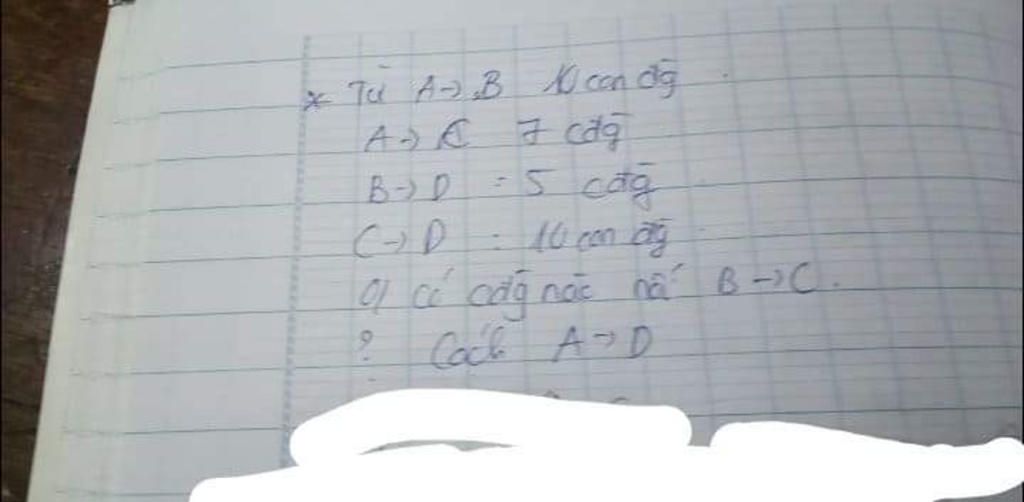 * Từ A → B 10 con đg̃
A → C 7 cđg̃
B → D = 5 cđg̃
C → D : 10 con đg̃
có cđg̃ nào B → C.
? Cách A → D